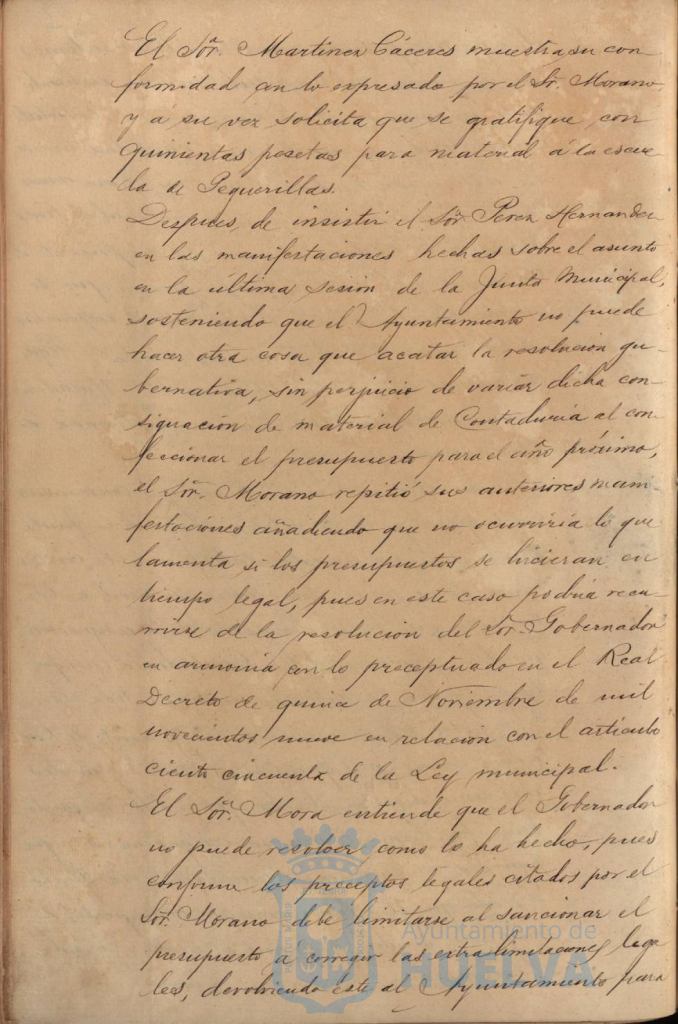 El Sör. Martinez Cáceres muestra su con
formidad con lo expresado por el Sr. Morano,
y á su vez solicita que se gratifique con
quinientas pesetas para material á la escue
la de Peguerillas.
Despues, de insistir el Sör. Perez Hernandez
en las manifestaciones hechas sobre el asunto
en la última sesion de la Junta Municipal,
sosteniendo que el Ayuntamiento no puede
hacer otra cosa que acatar la resolucion gu-
bernativa, sin perjuicio de variar dicha con-
signacion de material de Contaduría al con-
feccionar el presupuesto para el año próximo,
el Sör. Morano repitió sus anteriores mani-
festaciones añadiendo que no ocurriría lo que
lamenta si los presupuestos se hicieran en
tiempo legal, pues en este caso podria recu-
rrirse de la resolucion del Sör. Gobernador
en armonia con lo preceptuado en el Real
Decreto de quince de Noviembre de mil
novecientos nueve en relacion con el artículo
ciento cincuenta de la Ley municipal.
El Sör. Mora entiende que el Gobernador
no puede resolver como lo ha hecho, pues
conforme los preceptos legales citados por el
Sör. Morano debe limitarse al sancionar el
presupuesto a corregir las extralimitaciones lega
les, devolviendo este al Ayuntamiento para
Ayuntamiento de
HUELVA